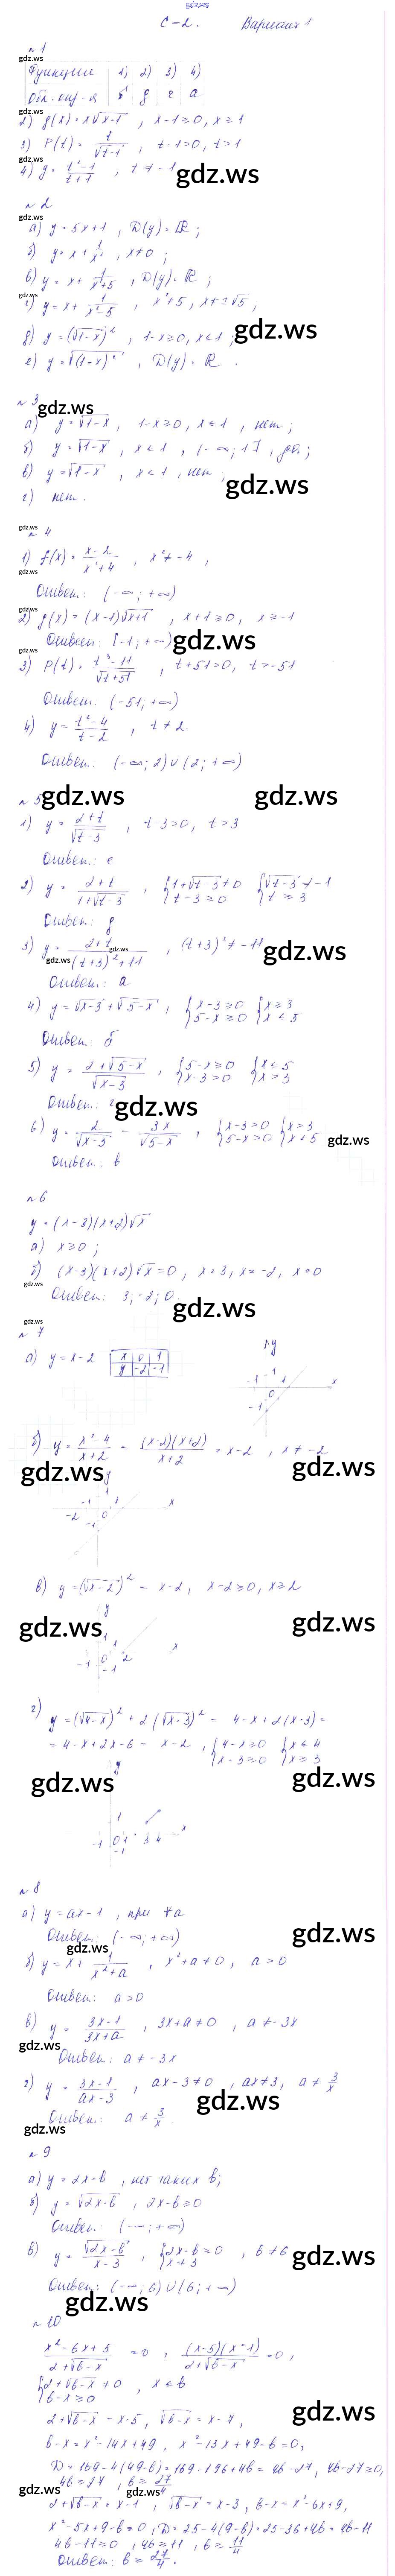 gdz.ws
С-2. Вариант 1
№1
gdz.ws
Функции 1) 2) 3) 4)
Обл. опр-я б д г а
gdz.ws
2) g(x) = x√(x-1) , x-1≥0, x≥1
3) P(t) = t/√(t-1) , t-1>0, t>1
gdz.ws
4) y = (t²-1)/(t+1) , t≠-1 gdz.ws
№2
gdz.ws
а) y = 5x+1 , D(y) = ℝ ;
б) y = x + 1/x² , x≠0 ;
в) y = x + 1/(x²+5) , D(y) = ℝ ;
gdz.ws
г) y = x + 1/(x²-5) , x²≠5, x≠±√5 ;
д) y = (√(1-x))² , 1-x≥0, x≤1 ; gdz.ws
е) y = √((1-x)²) , D(y) = ℝ .
№3 gdz.ws
а) y = √(1-x) , 1-x≥0, x≤1 , нет ;
б) y = √(1-x) , x≤1 , (-∞; 1] , да ;
в) y = √(1-x) , x≤1 , нет ; gdz.ws
г) нет .
gdz.ws
№4
1) f(x) = (x-2)/(x²+4) , x²≠-4 ,
gdz.ws
Ответ: (-∞; +∞)
gdz.ws
2) g(x) = (x-1)√(x+1) , x+1≥0, x≥-1
Ответ: [-1; +∞) gdz.ws
gdz.ws
3) P(t) = (t³-11)/√(t+51) , t+51>0, t>-51
Ответ: (-51; +∞)
4) y = (t²-4)/(t-2) , t≠2
Ответ: (-∞; 2)∪(2; +∞)
№5 gdz.ws gdz.ws
1) y = (2+t)/√(t-3) , t-3>0, t>3
Ответ: е
2) y = (2+t)/(1+√(t-3)) , {1+√(t-3)≠0 {√(t-3)≠-1
t-3≥0 t≥3
Ответ: д
3) y = (2+t)/((t+3)²+11) , (t+3)²≠-11 gdz.ws
gdz.ws gdz.ws
Ответ: а
4) y = √(x-3) + √(5-x) , {x-3≥0 {x≥3
5-x≥0 x≤5
Ответ: б
5) y = (2+√(5-x))/√(x-3) , {5-x≥0 {x≤5
x-3>0 x>3
Ответ: г gdz.ws
6) y = 2/√(x-3) - 3x/√(5-x) , {x-3>0 {x>3
5-x>0 x<5 gdz.ws
Ответ: в
№6
y = (x-3)(x+2)√x
а) x≥0 ;
б) (x-3)(x+2)√x = 0 , x=3, x=-2, x=0
gdz.ws
Ответ: 3; -2; 0. gdz.ws
gdz.ws
№7
а) y = x-2 x 0 1
y -2 -1
y
-1 1 0 1 x
-1
б) y = (x²-4)/(x+2) = ((x-2)(x+2))/(x+2) = x-2 , x≠-2
gdz.ws gdz.ws
y
-2 -1 1 0 1 x
-1
в) y = (√(x-2))² = x-2, x-2≥0, x≥2
gdz.ws gdz.ws
y
1
-1 0 1 2 x
-1
г) y = (√(4-x))² + 2(√(x-3))² = 4-x+2(x-3) =
= 4-x+2x-6 = x-2 , {4-x≥0 {x≤4
x-3≥0 x≥3
gdz.ws gdz.ws
y
1
-1 0 1 3 4 x
-1
№8
а) y = ax-1 , при ∀a
Ответ: (-∞; +∞) gdz.ws
gdz.ws
б) y = x + 1/(x²+a) , x²+a≠0 , a>0
Ответ: a>0
в) y = (3x-1)/(3x+a) , 3x+a≠0 , a≠-3x
gdz.ws
Ответ: a≠-3x
г) y = (3x-1)/(ax-3) , ax-3≠0 , ax≠3, a≠3/x
gdz.ws
Ответ: a≠3/x .
gdz.ws
№9
а) y = 2x-b , нет таких b;
б) y = √(2x-b) , 2x-b≥0
Ответ: (-∞; +∞)
в) y = √(2x-b)/(x-3) , {2x-b≥0 , b≠6 gdz.ws
x≠3
Ответ: (-∞; 6)∪(6; +∞)
gdz.ws
№10
(x²-6x+5)/(2+√(b-x)) = 0 , ((x-5)(x-1))/(2+√(b-x)) = 0 ,
{2+√(b-x)≠0 , x≤b
b-x≥0
gdz.ws
2+√(b-x) = x-5 , √(b-x) = x-7 ,
b-x = x²-14x+49 , x²-13x+49-b=0,
D = 169-4(49-b) = 169-196+4b = 4b-27, 4b-27≥0,
gdz.ws 4b≥27 , b≥27/4 gdz.ws
2+√(b-x) = x-1 , √(b-x) = x-3 , b-x = x²-6x+9,
x²-5x+9-b=0 , D = 25-4(9-b) = 25-36+4b = 4b-11
4b-11≥0 , 4b≥11 , b≥11/4
Ответ: b≥27/4 .